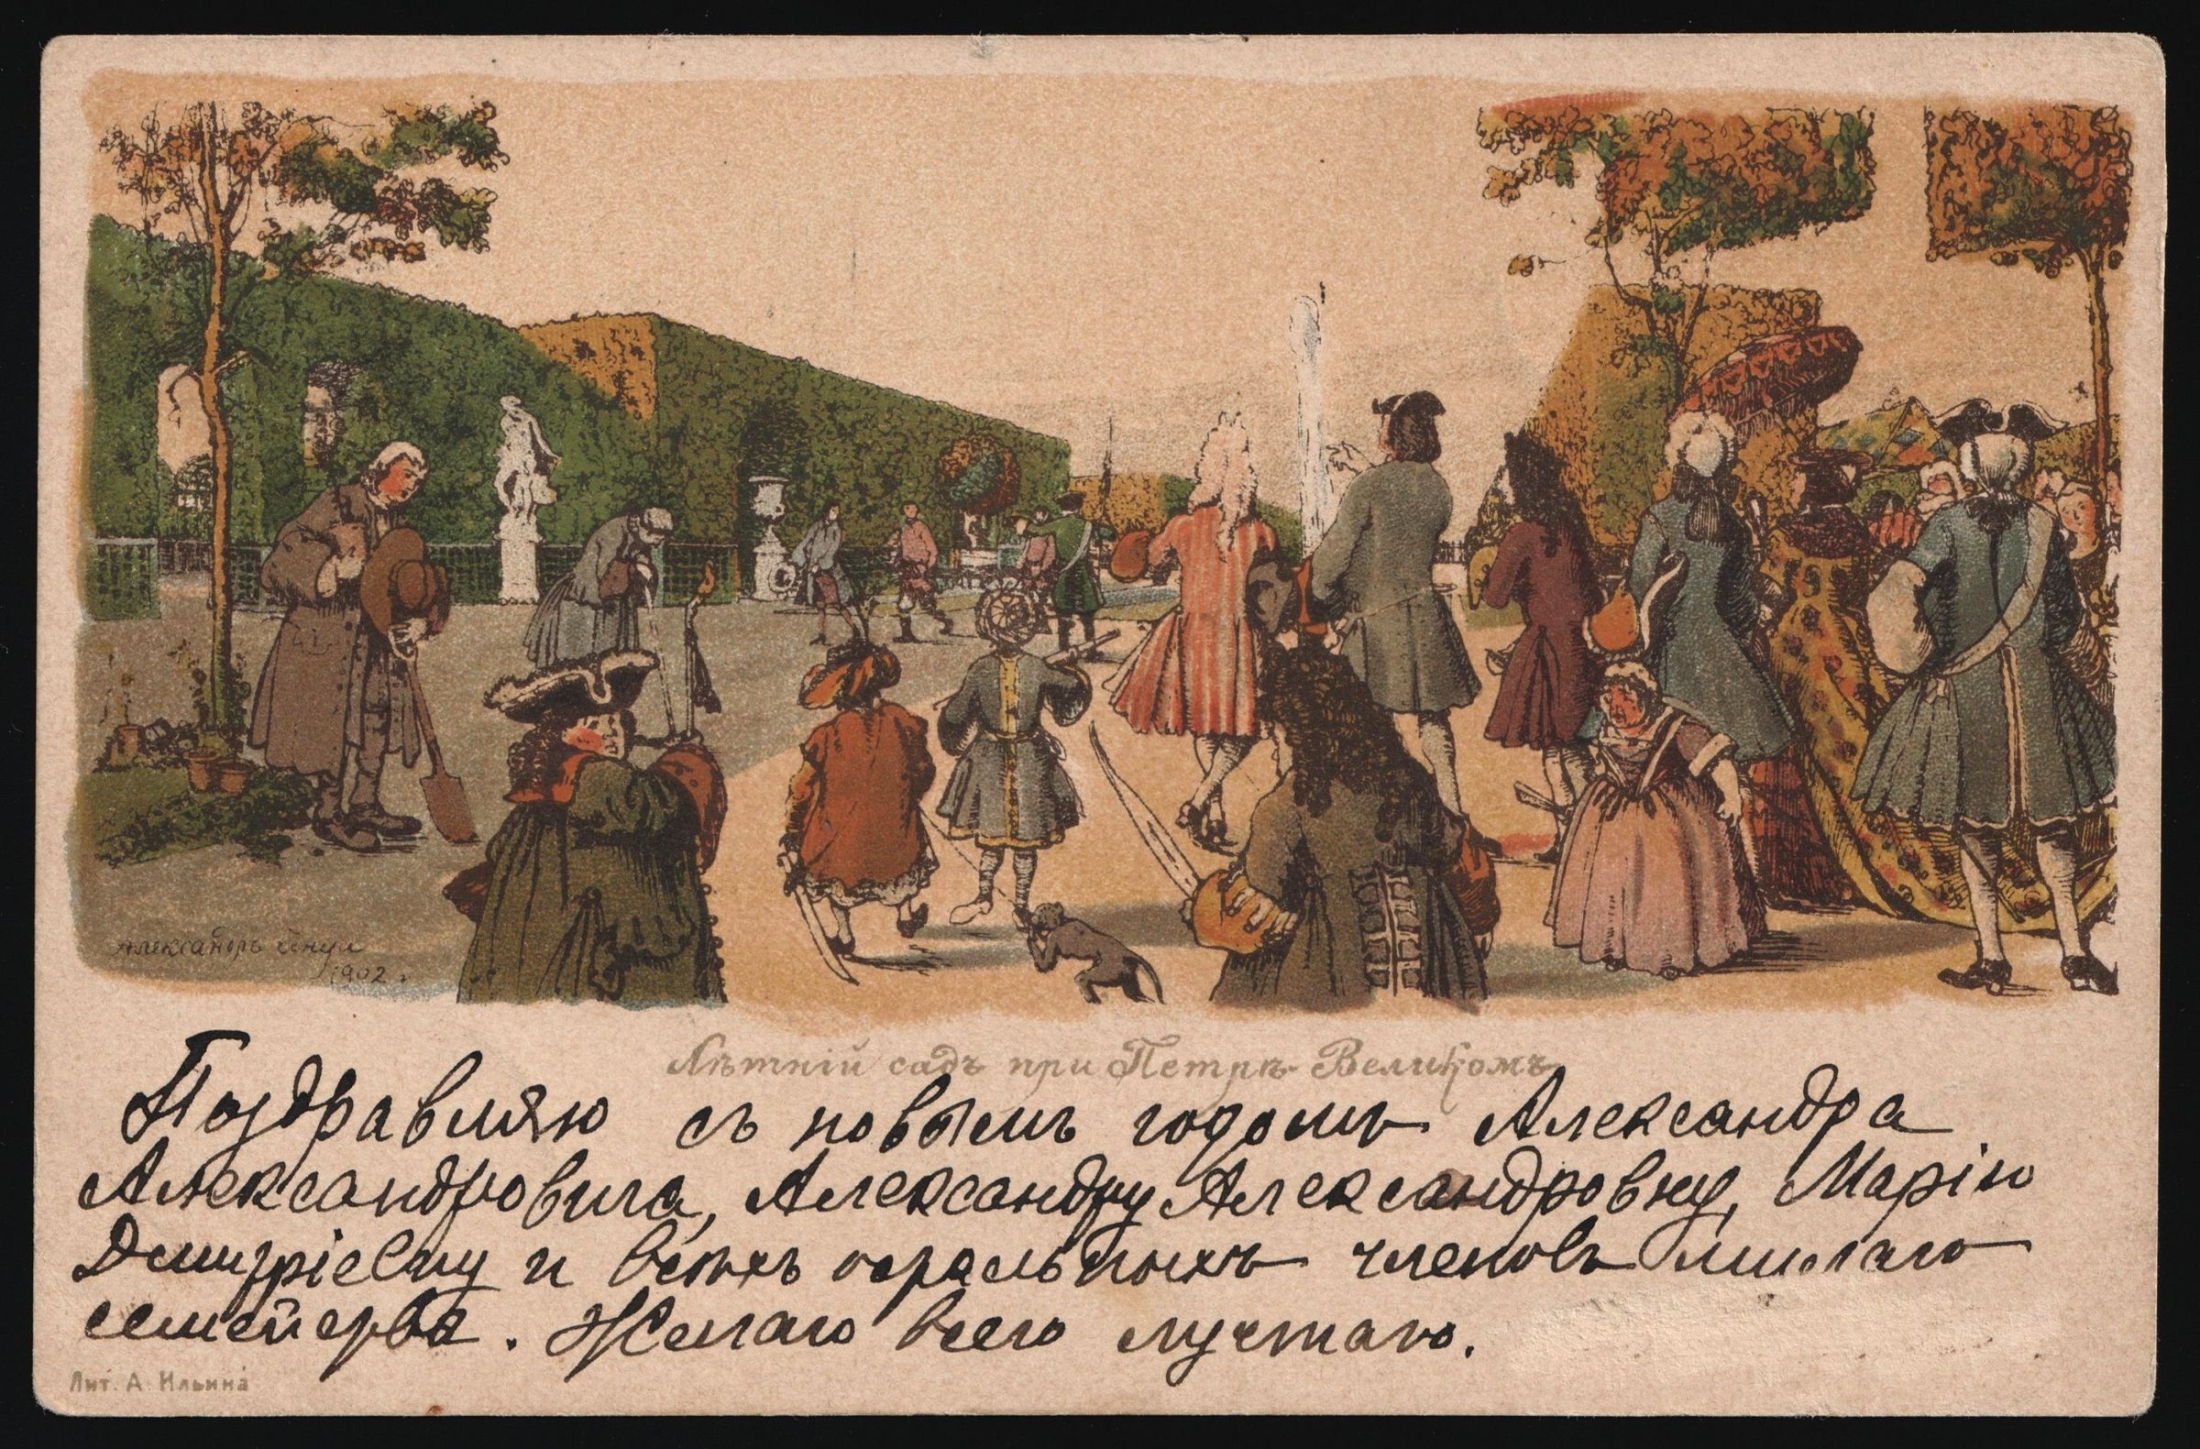 Александръ Бенуа
1902 г.
Лѣтній садъ при Петрѣ Великомъ
Поздравляю съ новымъ годомъ Александра
Александровича, Александру Александровну, Марію
Дмитріевну и всѣхъ остальныхъ членовъ милаго
семейства. Желаю всего лучшаго.
Лит. А. Ильина